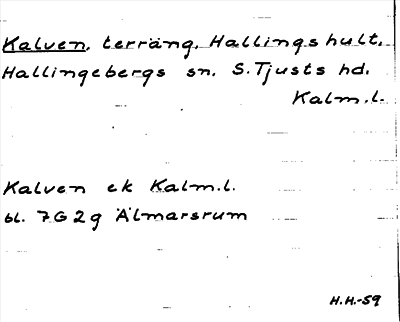 Kalven, terräng, Hallingshult,
Hallingebergs sn, S.Tjusts hd.
Kalm.l.
Kalven ek Kalm.l.
bl. 7G2g Älmarsrum
H.H.-59